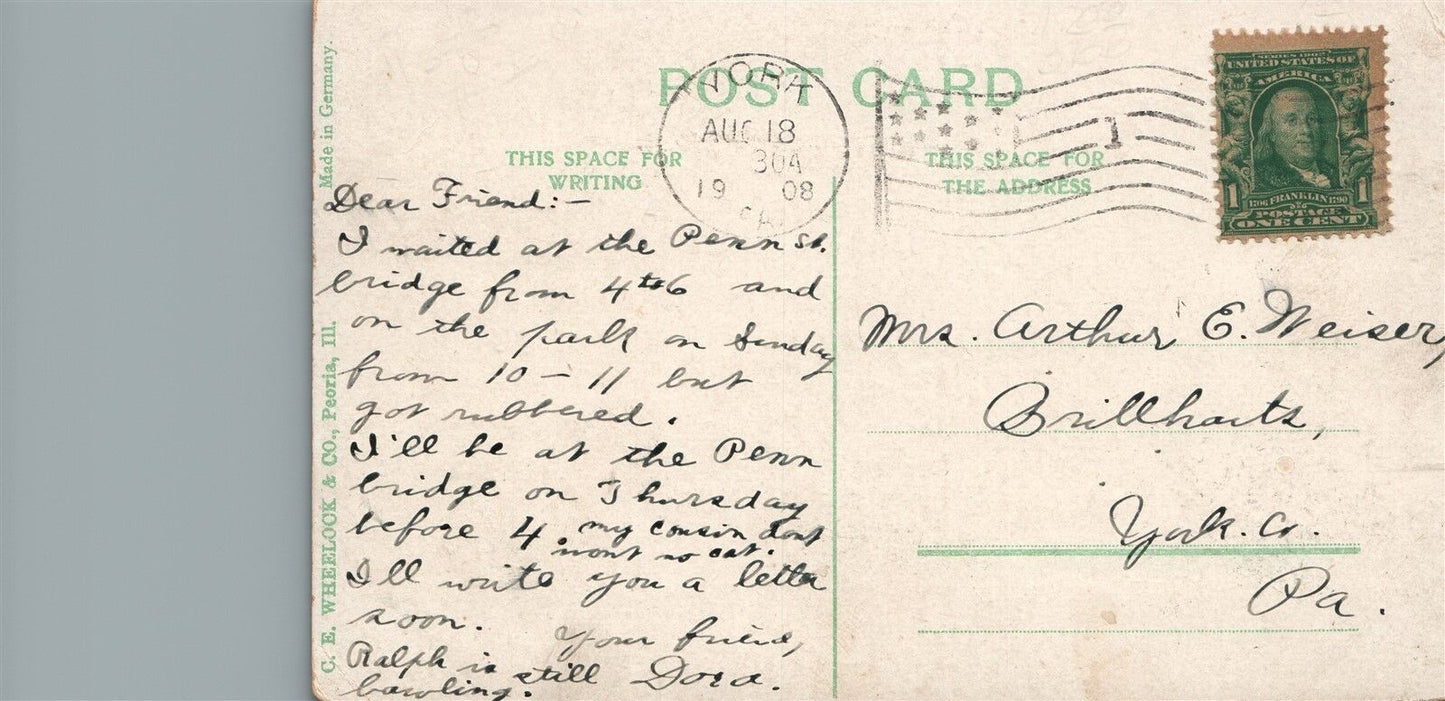 Made in Germany.
C. E. WHEELOCK & CO., Peoria, Ill.
POST CARD
THIS SPACE FOR
WRITING
THIS SPACE FOR
THE ADDRESS
YORK
AUG 18
304
19 08
PA
1
SERIES 1902
UNITED STATES OF
AMERICA
1 1
1706 FRANKLIN 1790
POSTAGE
ONE CENT
Dear Friend:-
I waited at the Penn St.
bridge from 4 to 6 and
on the park on Sunday
from 10 - 11 but
got rubbered.
I'll be at the Penn
bridge on Thursday
before 4. my cousin dont
wont no cat.
I'll write you a letter
soon. Your friend,
Ralph is still Dora.
bawling.
Mrs. Arthur E. Weiser,
Brillharts,
York. Co.
Pa.